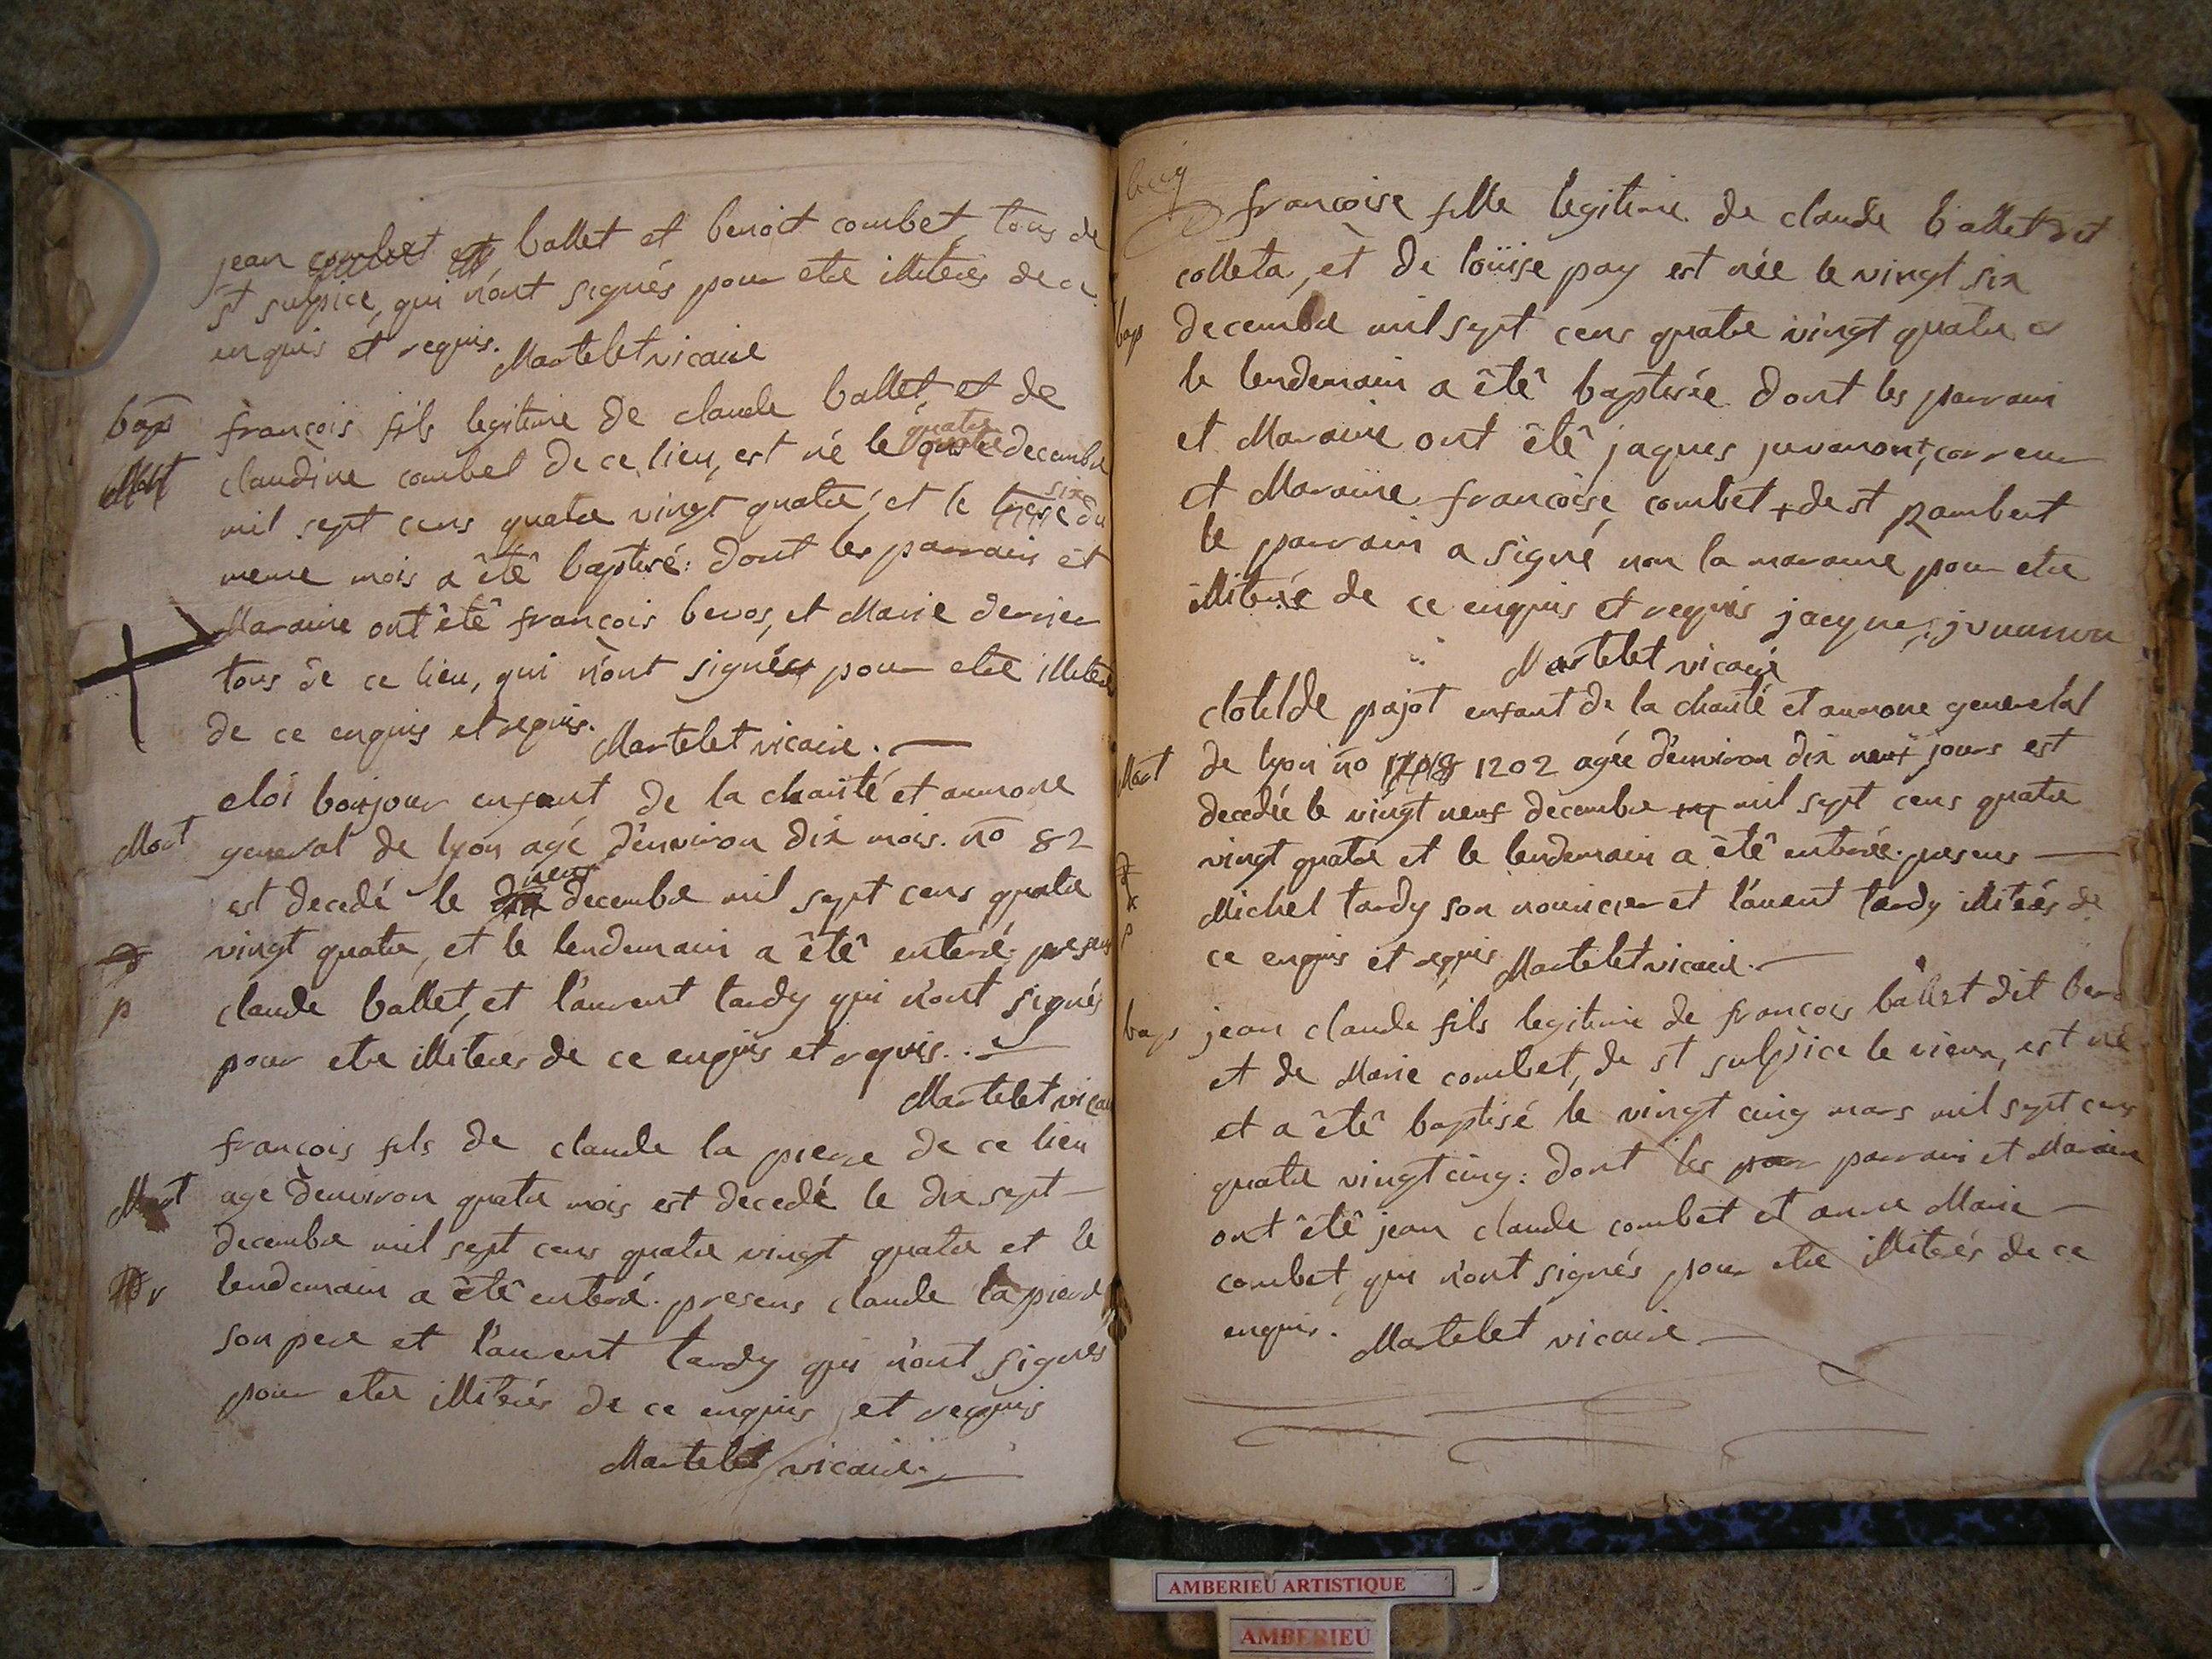 jean combet et ballet et benoit combet, tous de
st sulpice, qui n'ont signés pour etre illiterés de ce
enquis et requis. Martelet vicaire
bapt françois fils legitime de claude ballet, et de
claudine combet de ce lieu, est né le quatre decembre
mil sept cens quatre vingt quatre, et le six du
meme mois a êtê baptisé: dont les parrain et
Maraine ont êtê françois bevos, et Marie derrier
tous de ce lieu, qui n'ont signés pour etre illiterés
de ce enquis et requis. Martelet vicaire.
eloi bonjour enfant de la charité et aumone
Mort general de lyon agé d'environ dix mois. no 82
est decedé le neuf decembre mil sept cens quatre
vingt quatre, et le lendemain a êtê enterré. presens
p claude ballet, et l'aurent tardy qui n'ont signés
pour etre illiterés de ce enquis et requis.
Martelet vicaire
françois fils de claude la pierre de ce lieu
Mort agé d'environ quatre mois est decedé le dix sept
decembre mil sept cens quatre vingt quatre et le
lendemain a êtê enterré. presens claude la pierre
son pere et l'aurent tardy qui n'ont signés
pour etre illiterés de ce enquis et requis
Martelet vicaire.
françoise fille legitime de claude ballet dit
colleta, et de loüise pay est née le vingt six
bap decembre mil sept cens quatre vingt quatre et
le lendemain a êtê baptisée dont les parrain
et Maraine ont êtê jaques juvanon
et Maraine françoise combet + de st Rambert
le parrain a signé non la maraine pour etre
illiterée de ce enquis et requis jacque juvanon
Martelet vicaire
clotilde pajot enfant de la charité et aumone general
Mort de lyon no 1202 agée d'environ dix neuf jours est
decedée le vingt neuf decembre mil sept cens quatre
vingt quatre et le lendemain a êtê enterrée. presens
Michel tardy son nouricier et l'aurent tardy illiterés de
ce enquis et requis Martelet vicaire.
bap jean claude fils legitime de françois ballet dit
et de Marie combet, de st sulpice le vieux, est né
et a êtê baptisé le vingt cinq mars mil sept cens
quatre vingt cinq: dont les parrain et Maraine
ont êtê jean claude combet et anne Marie
combet, qui n'ont signés pour etre illiterés de ce
enquis. Martelet vicaire
AMBERIEU ARTISTIQUE
AMBERIEU